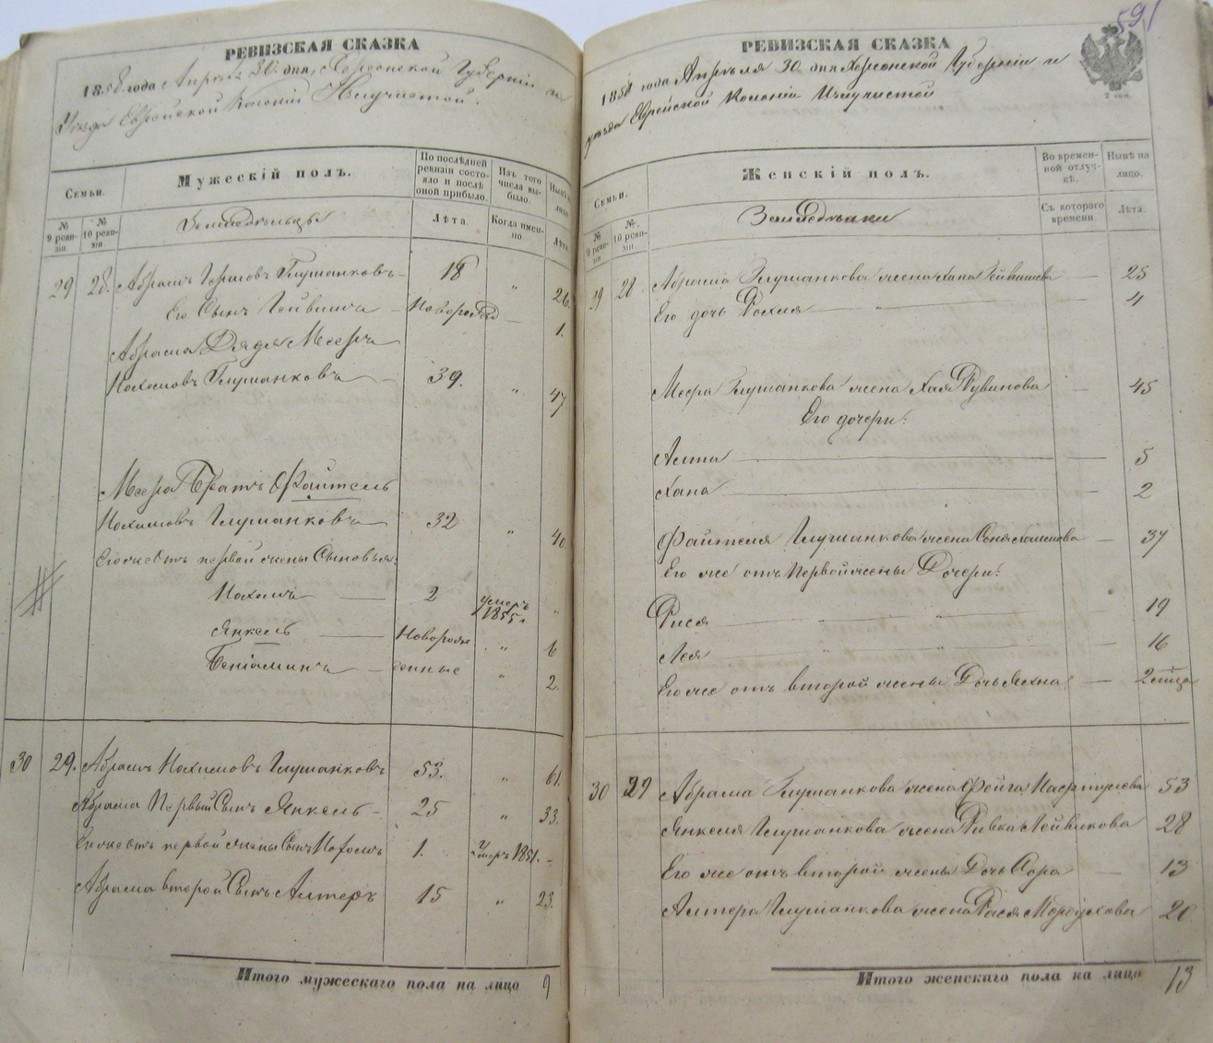 РЕВИЗСКАЯ СКАЗКА
1858 года Апреля 30 дня, Херсонской Губернии и
Уезда Еврейской Колонии Излучистой.
Семьи.
Мужескій полъ.
По послѣдней ревизіи состояло и послѣ оной прибыло.
Изъ того числа выбыло.
Нынѣ на лицо.
№ 9 ревизіи.
№ 10 ревизіи.
Земледѣльцы
Лѣта.
Когда именно
Лѣта.
29 28. Абрамъ Глушанковъ 18 " 26.
Его Сынъ Новорожд 1.
Абрама Дядя Мееръ
Нохимовъ Глушанковъ 39. " 47
Меера Братъ Файтель
Нохимовъ Глушанковъ 32 " 40
Его же отъ первой жены Сыновья:
Нохимъ 2 умеръ 1855 г. "
Янкель Новорож " 6
Беніаминъ денные " 2.
30 29. Абрамъ Нохимовъ Глушанковъ 53. " 61.
Абрама Первый Сынъ Янкель 25 " 33.
Его же отъ первой жены Сынъ Нохомъ 1. умеръ 1851. -
Абрама второй Сынъ Алтеръ 15 " 23.
Итого мужескаго пола на лицо 9
591
РЕВИЗСКАЯ СКАЗКА
1858 года Апрѣля 30 дня Херсонской Губерніи и
уѣзда Еврейской Колоніи Излучистой
Семьи.
Женскій полъ.
Во временной отлучкѣ.
Нынѣ на лицо.
№ 9 ревизіи.
№. 10 ревизіи.
Земледѣлки
Съ котораго времени.
Лѣта.
29 28 Абрама Глушанкова жена Хана 25
Его дочь Рохля 4
Меера Глушанкова жена Хая Рувинова 45
Его дочери:
Алта 5
Хана 2
Файтеля Глушанкова жена 37
Его же отъ Первой жены Дочери:
Рися 19
Лея 16
Его же отъ второй жены Дочь 2
30 29 Абрама Глушанкова жена Фейга 53
Янкеля Глушанкова жена Ривка Лейвикова 28
Его же отъ второй жены Дочь Сора 13
Алтера Глушанкова жена Рася Мордухова 20
Итого женскаго пола на лицо 13